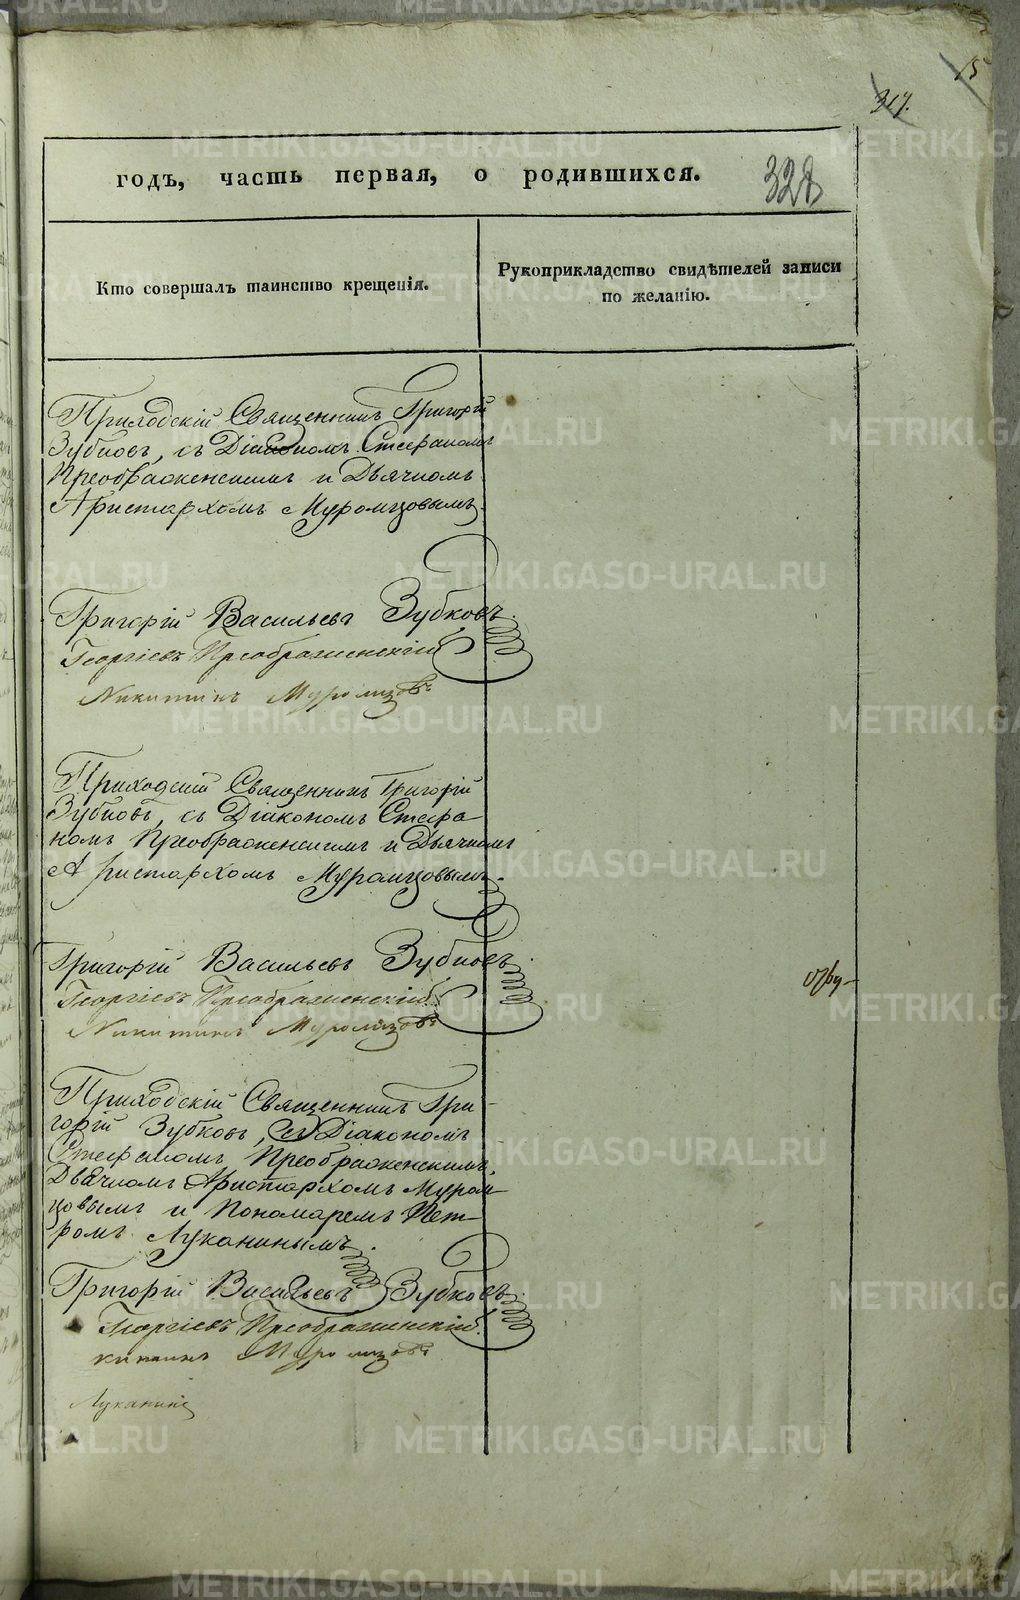 15
317.
годъ, часть первая, о родившихся.
328
Кто совершалъ таинство крещенія.
Рукоприкладство свидѣтелей записи
по желанію.
Приходскій Священникъ Григорій
Зубковъ, съ Діакономъ Стефаномъ
Преображенскимъ и Дьячкомъ
Аристархомъ Муромцовымъ.
Григорій Васильевъ Зубковъ.
Георгіевъ Преображенскій
Никитинъ Муромцовъ
Приходскій Священникъ Григорій
Зубковъ, съ Діакономъ Стефа-
номъ Преображенскимъ и Дьячкомъ
Аристархомъ Муромцовымъ.
Григорій Васильевъ Зубковъ.
Георгіевъ Преображенскій
Никитинъ Муромцовъ
Приходскій Священникъ Гри-
горій Зубковъ, съ Діакономъ
Стефаномъ Преображенскимъ,
Дьячкомъ Аристархомъ Муром-
цовымъ и Пономаремъ Пет-
ромъ Луканинымъ.
Григорій Васильевъ Зубковъ.
Георгіевъ Преображенскій
китинъ Муромцовъ
Луканинъ
METRIKI.GASO-URAL.RU